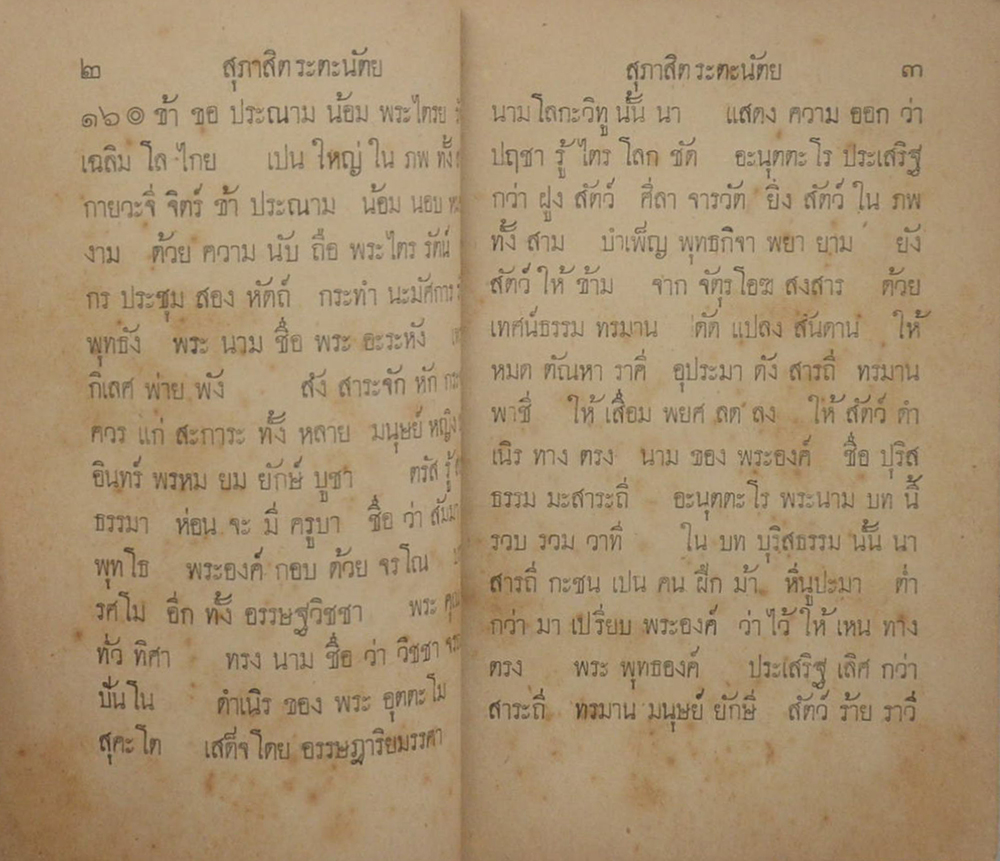 ๒ สุภาสิต ระตะนัตย
๑๖๐ ข้า ขอ ประณาม น้อม พระไตรย
เฉลิม โล ไกย เปน ใหญ่ ใน ภพ ทั้ง
กายวะจี จิตร์ ข้า ประณาม น้อม นอบ
งาม ด้วย ความ นับ ถือ พระ ไตร รัตน์
กร ประชุม สอง หัตถ์ กระทำ นะมัศการ
พุทธัง พระ นาม ชื่อ พระ อะระหัง
กิเลศ พ่าย พัง สัง สาระจัก หัก
ควร แก่ สะการะ ทั้ง หลาย มนุษย์ หญิง
อินทร์ พรหม ยม ยักษ์ บูชา ตรัส รู้
ธรรมา ห่อน จะ มี ครูบา ชื่อ ว่า สัมมา
พุทโธ พระองค์ กอบ ด้วย จรโณ
รศโม อีก ทั้ง อรรษฐวิชชา พระ คุณ
ทั่ว ทิศา ทรง นาม ชื่อ ว่า วิชชา จะ
บันโน ดำเนิร ของ พระ อุตตะโม
สุคะโต เสด็จ โดย อรรษฎาริยมรรคา
สุภาสิต ระตะนัตย ๓
นาม โลกะวิทู นั้น นา แสดง ความ ออก ว่า
ปฤชา รู้ ไตร โลก ชัด อะนุตตะโร ประเสริฐ
กว่า ฝูง สัตว์ ศีลา จารวัต ยิ่ง สัตว์ ใน ภพ
ทั้ง สาม บำเพ็ญ พุทธกิจา พยา ยาม ยัง
สัตว์ ให้ ข้าม จาก จัตุร โอฆ สงสาร ด้วย
เทศน์ธรรม ทรมาน ดัด แปลง สันดาน ให้
หมด ตัณหา ราคี อุประมา ดัง สารถี ทรมาน
พาชี ให้ เสื่อม พยศ ลด ลง ให้ สัตว์ ดำ
เนิร ทาง ตรง นาม ของ พระองค์ ชื่อ ปุริส
ธรรม มะสาระถี อะนุตตะโร พระนาม บท นี้
รวบ รวม วาที ใน บท บุริสธรรม นั้น นา
สารถี กะชน เปน คน ฝึก ม้า หีนูปะมา ต่ำ
กว่า มา เปรียบ พระองค์ ว่า ไว้ ให้ เหน ทาง
ตรง พระ พุทธองค์ ประเสริฐ เลิศ กว่า
สาระถี ทรมาน มนุษย์ ยักษี สัตว์ ร้าย ราวี